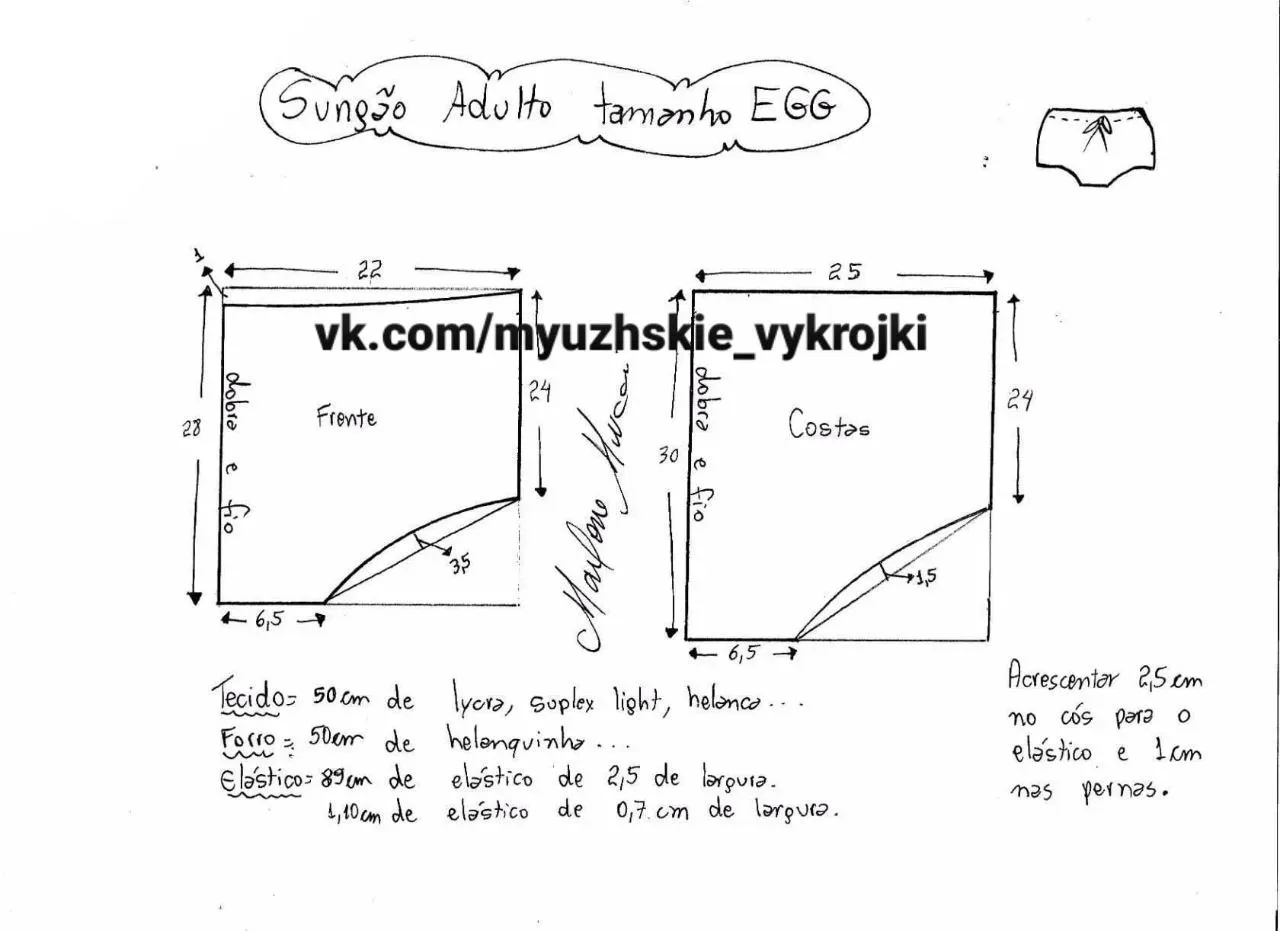 Sungão Adulto tamanho EGG
1
22
28
dobra e fio
Frente
24
3,5
6,5
vk.com/myuzhskie_vykrojki
25
30
dobra e fio
Costas
24
1,5
6,5
Tecido= 50cm de lycra, suplex light, helanca...
Forro= 50cm de helanquinha...
Elástico= 89cm de elástico de 2,5 de largura.
1,10cm de elástico de 0,7 cm de largura.
Acrescentar 2,5cm
no cós para o
elástico e 1cm
nas pernas.